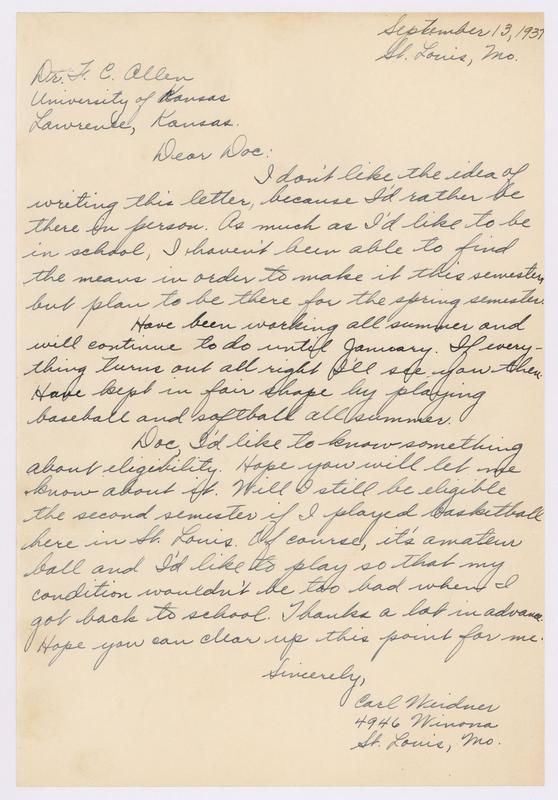 September 13, 1937
St. Louis, Mo.
Dr. F. C. Allen
University of Kansas
Lawrence, Kansas.
Dear Doc:
I don't like the idea of
writing this letter, because I'd rather be
there in person. As much as I'd like to be
in school, I haven't been able to find
the means in order to make it this semester,
but plan to be there for the spring semester.
Have been working all summer and
will continue to do until January. If every-
thing turns out all right I'll see you then.
Have kept in fair shape by playing
baseball and softball all summer.
Doc, I'd like to know something
about eligibility. Hope you will let me
know about it. Will I still be eligible
the second semester if I played basketball
here in St. Louis. Of course, it's amateur
ball and I'd like to play so that my
condition wouldn't be too bad when I
got back to school. Thanks a lot in advance.
Hope you can clear up this point for me.
Sincerely,
Carl Weidner
4946 Winona
St. Louis, Mo.